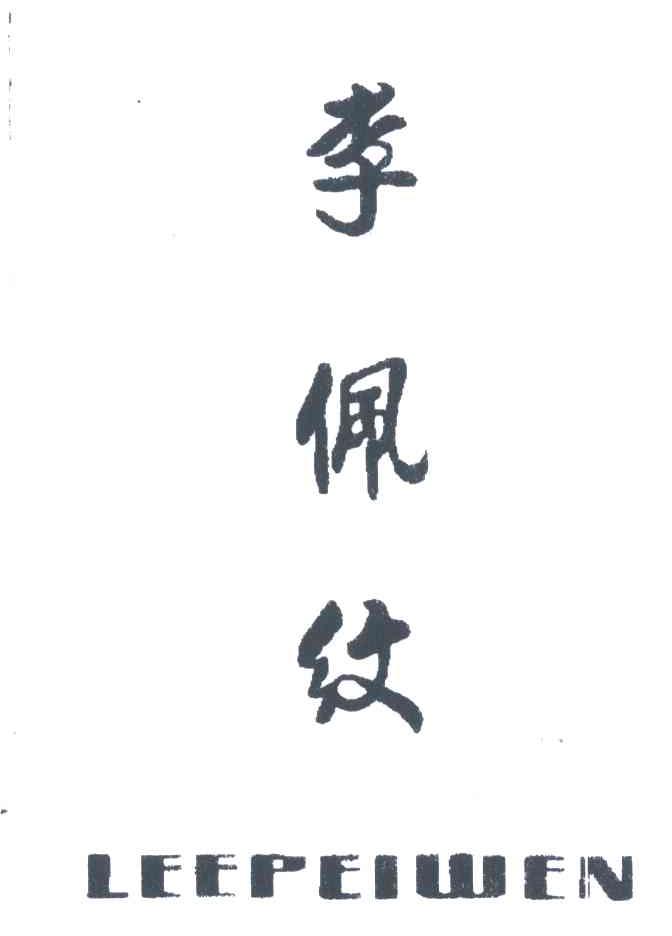 李
佩
纹
LEEPEIWEN